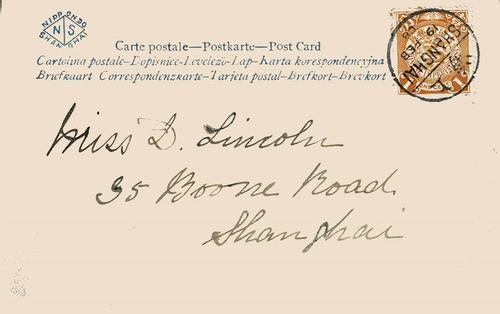 NIPPONDO
N S
SHANGHAI
Carte postale—Postkarte—Post Card
Cartolina postale—Dopisnice—Levelező-Lap—Karta korespondencyjna
Brefkaart Correspondenzkarte—Tarjeta postal—Brefkort—Brevkort
SHANGHAI
FEB
Miss D. Lincoln
35 Boone Road
Shanghai